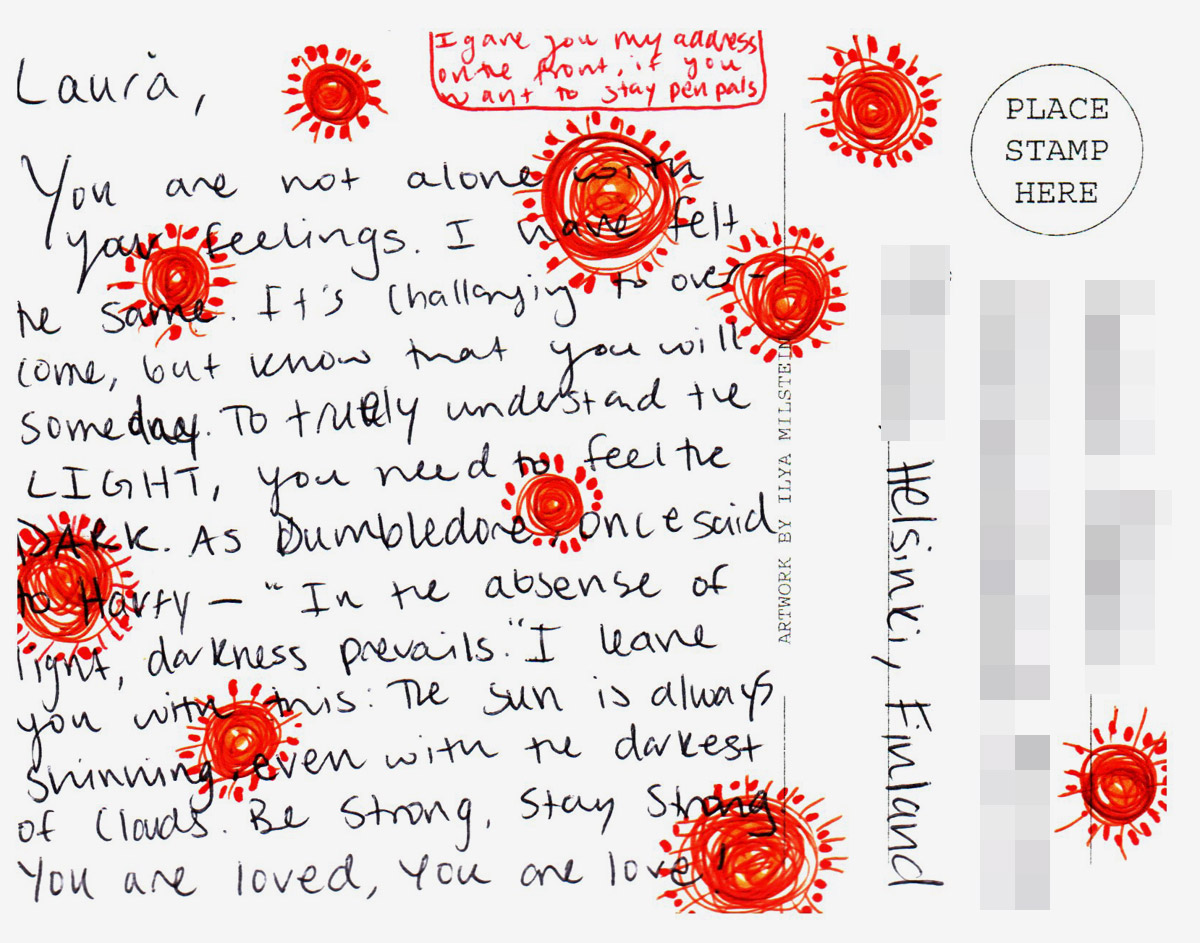 I gave you my address
on the front, if you
want to stay pen pals
Laura,
You are not alone with
your feelings. I have felt
the same. It's challenging to over-
come, but know that you will
someday. To truely understand the
LIGHT, you need to feel the
DARK. As Dumbledore, once said
to Harry – "In the absense of
light, darkness prevails." I leave
you with this: The sun is always
shinning, even with the darkest
of clouds. Be strong, stay strong.
You are loved, you are love!
ARTWORK BY ILYA MILSTEIN
PLACE
STAMP
HERE
Helsinki, Finland